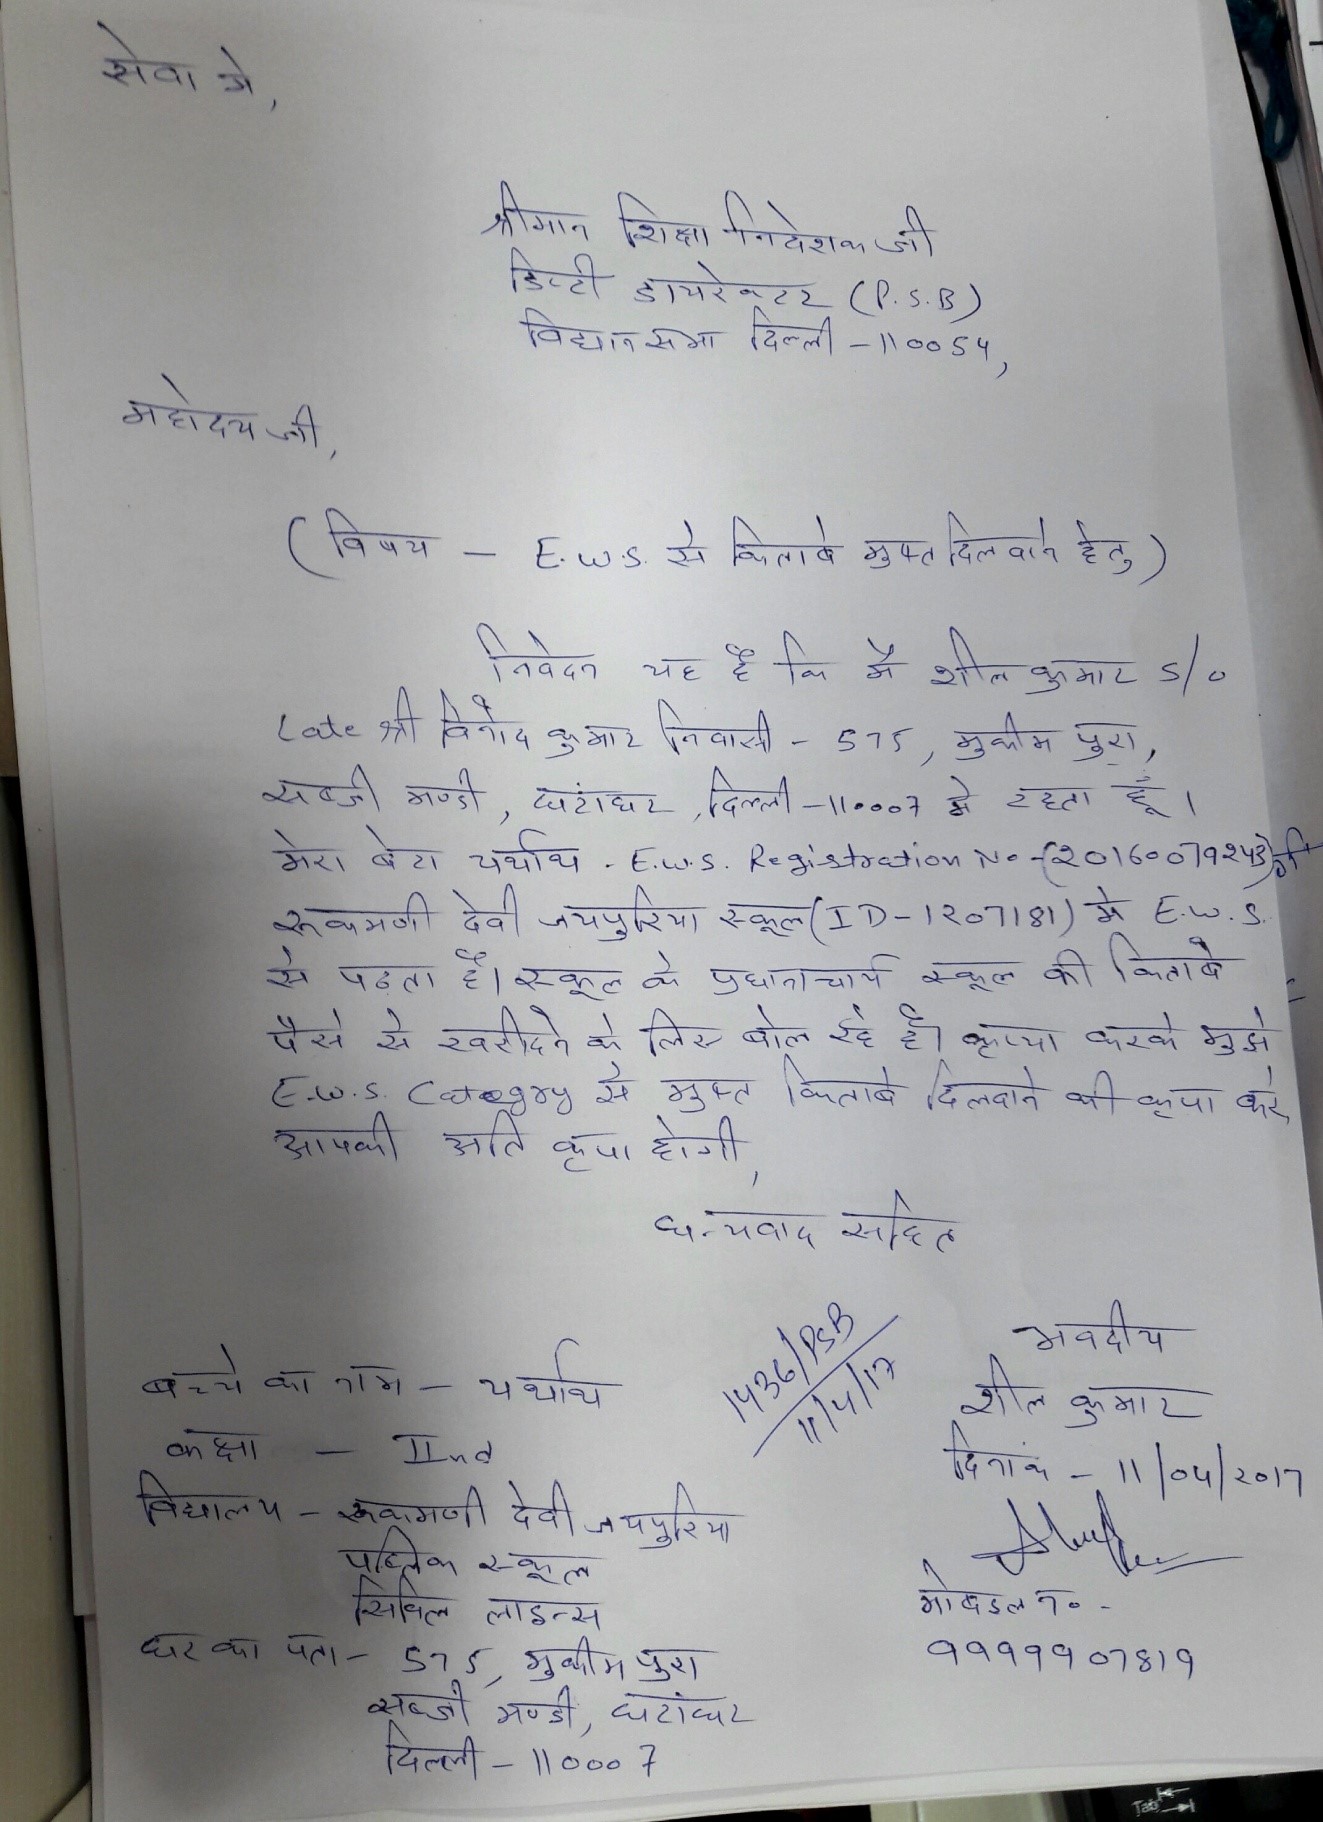 सेवा मे,
श्रीमान शिक्षा निदेशक जी
डिप्टी डायरेक्टर (P.S.B)
विधानसभा दिल्ली - 110054,
महोदय जी,
(विषय - E.W.S. से किताबे मुफ्त दिलवाने हेतु)
निवेदन यह है कि मै शील कुमार S/O
Late श्री विनोद कुमार निवासी - 575, मुकीम पुरा,
सब्जी मण्डी, घटांघर, दिल्ली - 110007 मे रहता हूँ।
मेरा बेटा यर्थाथ - E.W.S. Registration No - (20160079243) जी
रूकमणी देवी जयपुरिया स्कूल (ID - 1207181) मे E.W.S.
से पढता है। स्कूल के प्रधानाचार्य स्कूल की किताबे
पैसे से खरीदने के लिए बोल रहे है। कृप्या करके मुझे
E.W.S. Categry से मुफ्त किताबे दिलवाने की कृपा करे,
आपकी अति कृपा होगी,
धन्यवाद सहित
भवदीय
शील कुमार
दिनांक - 11/04/2017
मोबइल न० -
9999907819
1436/PSB
11/4/17
बच्चे का नाम - यर्थाथ
कक्षा - IInd
विद्यालय - रूकमणी देवी जयपुरिया
पब्लिक स्कूल
सिविल लाइन्स
घर का पता - 575, मुकीम पुरा
सब्जी मण्डी, घटांघर
दिल्ली - 110007
Tab